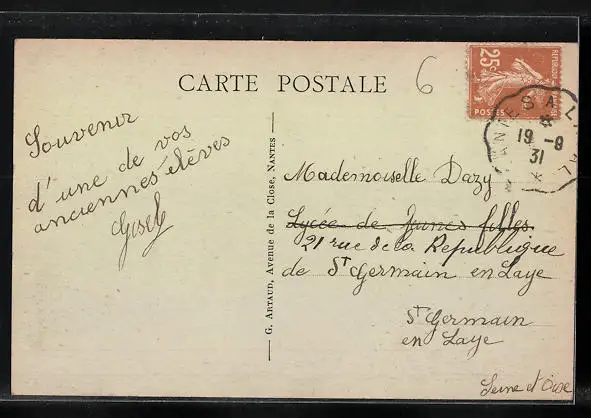 CARTE POSTALE
6
25c
REPUBLIQUE FRANÇAISE
POSTES
19 -9
31
Souvenir
d'une de vos
anciennes élèves
G. ARTAUD, Avenue de la Close, NANTES
Mademoiselle Dazy
Lycée de Jeunes filles
21 rue de la Republique
de St Germain en Laye
St Germain
en Laye
Seine et Oise